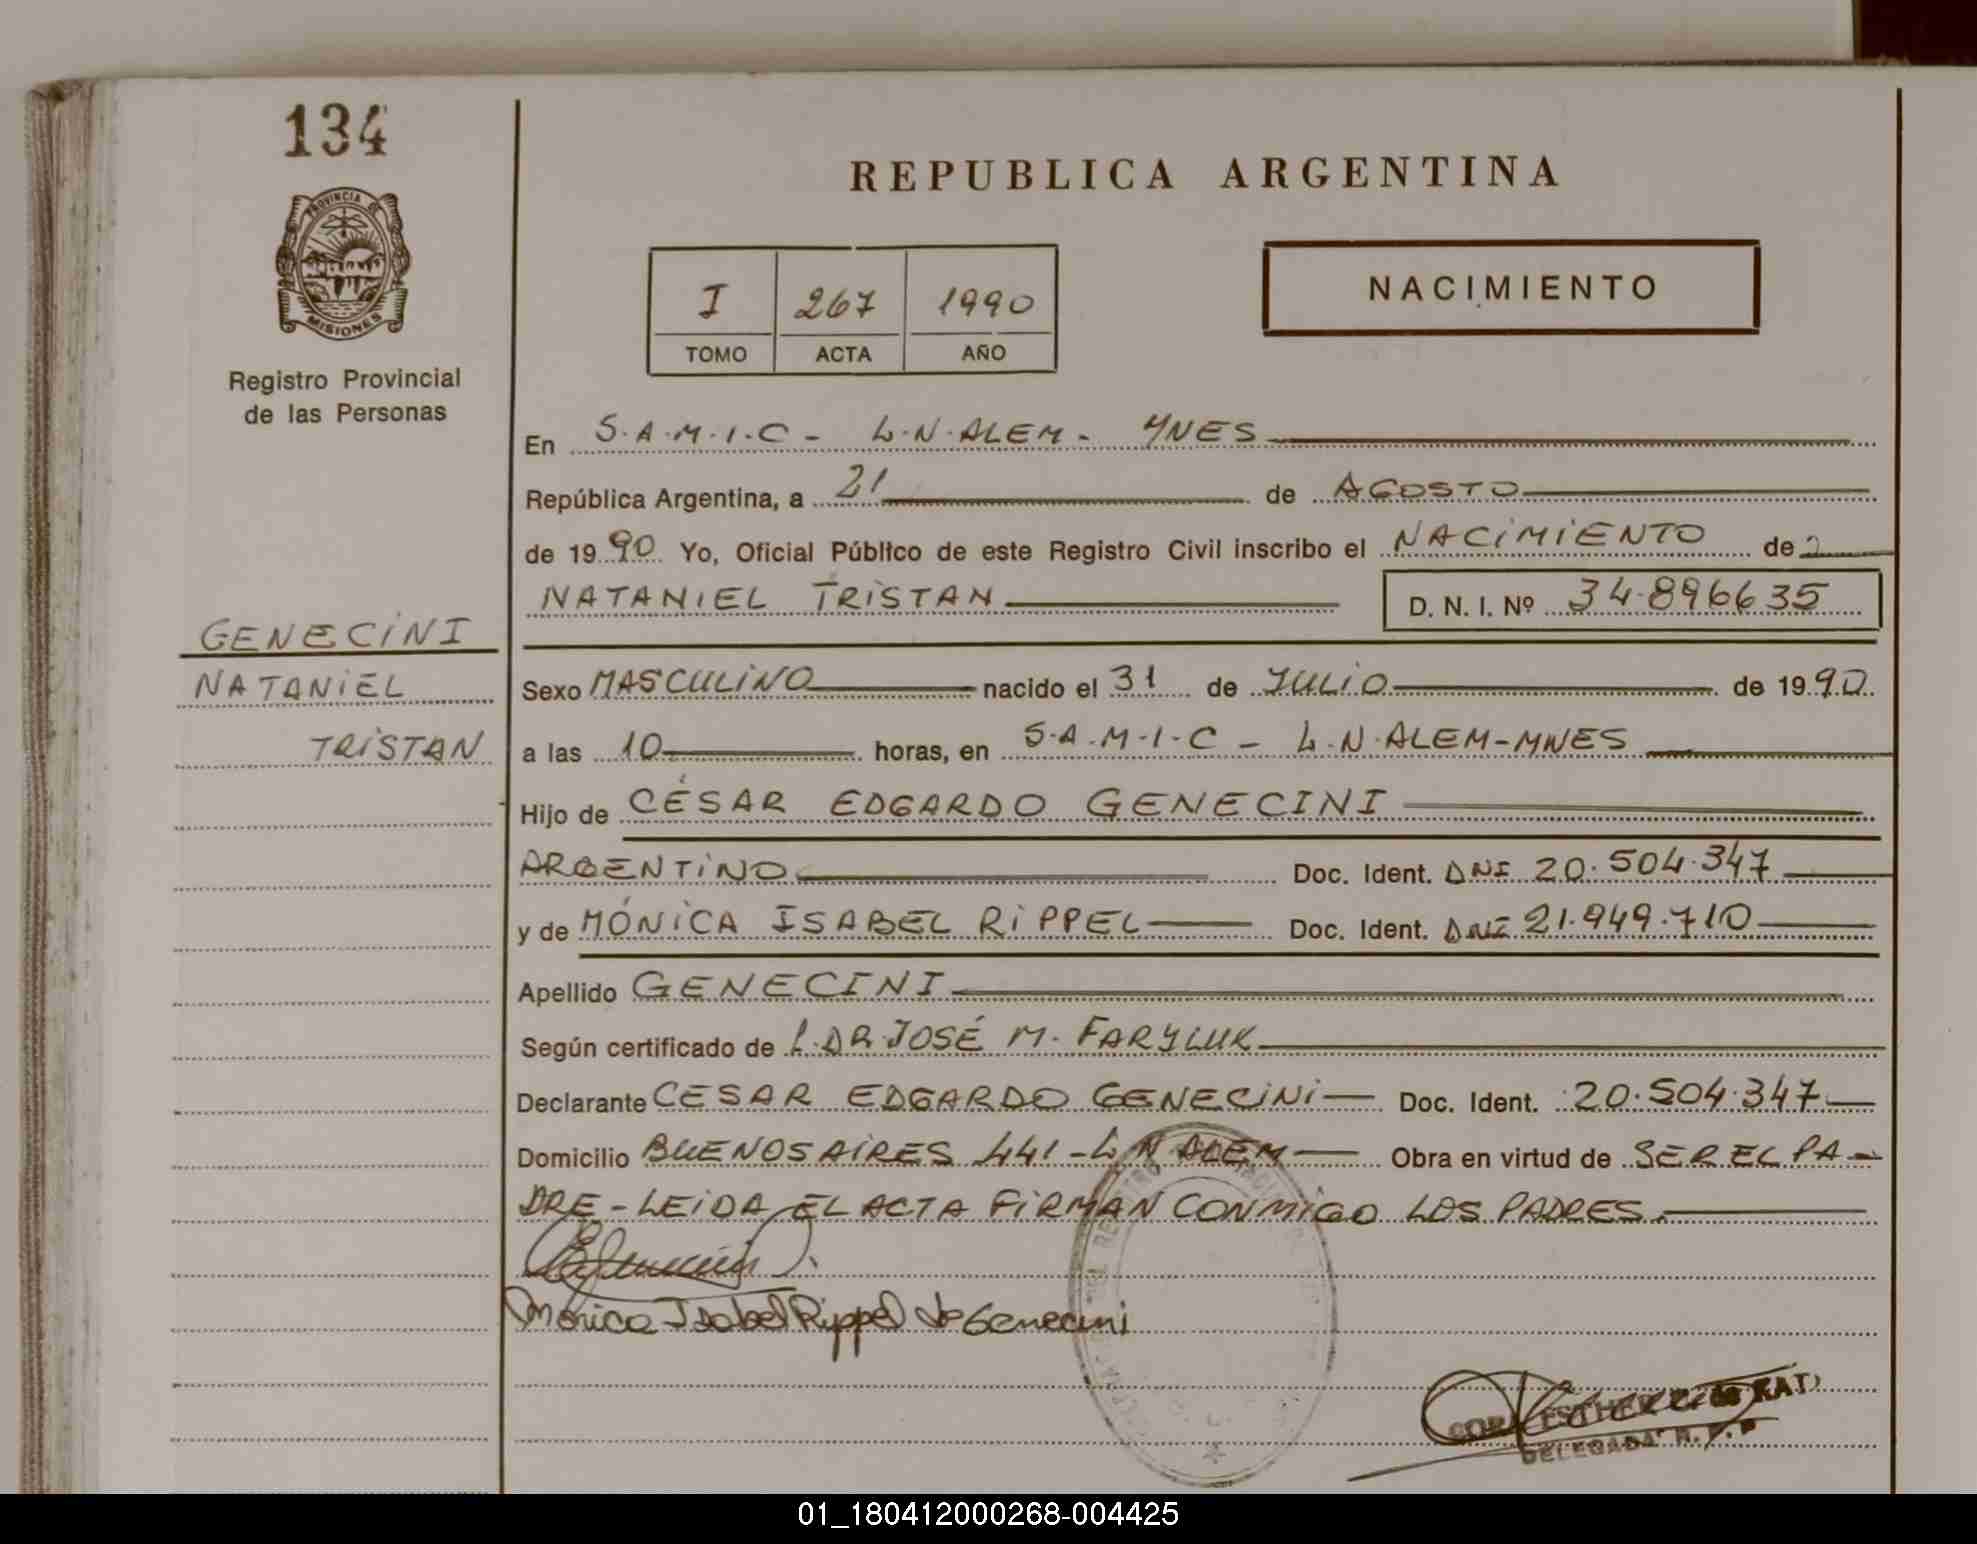 134
PROVINCIA DE
MISIONES
Registro Provincial
de las Personas
REPUBLICA ARGENTINA
I 267 1990
TOMO ACTA AÑO
NACIMIENTO
En S.A.M.I.C - L.N.ALEM- MNES
República Argentina, a 21 de AGOSTO
de 1990 Yo, Oficial Público de este Registro Civil inscribo el NACIMIENTO de
NATANIEL TRISTAN D. N. I. Nº 34.896635
GENECINI
NATANIEL
TRISTAN
Sexo MASCULINO nacido el 31 de JULIO de 1990
a las 10 horas, en S.A.M.I.C - L.N.ALEM-MNES
Hijo de CÉSAR EDGARDO GENECINI
ARGENTINO Doc. Ident. DNI 20.504.347
y de MÓNICA ISABEL RIPPEL Doc. Ident. DNI 21.949.710
Apellido GENECINI
Según certificado de DR.JOSÉ M. FARYLUK
Declarante CESAR EDGARDO GENECINI Doc. Ident. 20.504.347
Domicilio BUENOS AIRES 441-L N ALEM Obra en virtud de SER EL PA-
DRE - LEIDA EL ACTA FIRMAN CONMIGO LOS PADRES.
Mónica Isabel Rippel de Genecini
ESTHER de
DELEGADA R. P. P
01_180412000268-004425